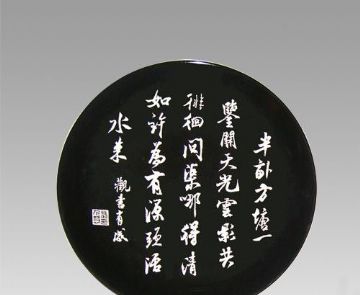 半畝方塘一
鑒開天光雲影共
徘徊問渠哪得清
如許為有源頭活
水来
觀書有感